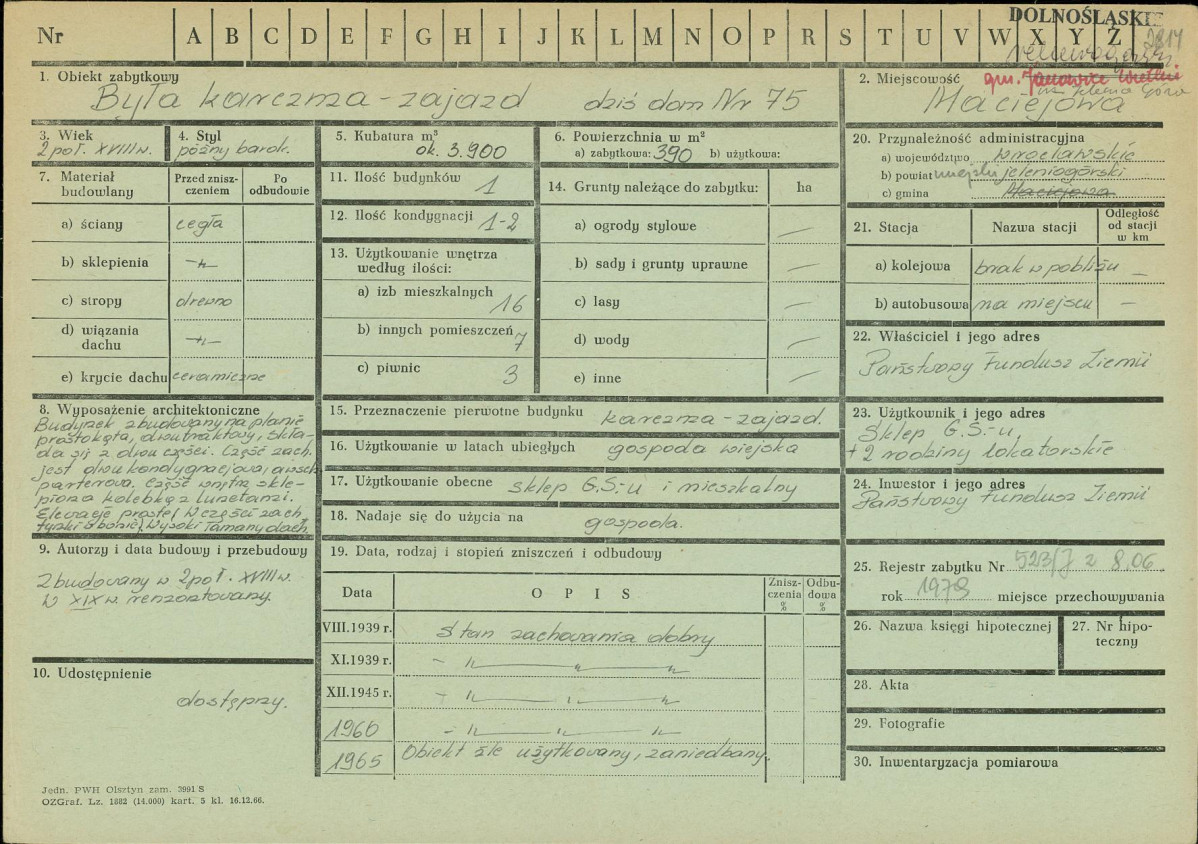 Nr A B C D E F G H I J K L M N O P R S T U V W X Y Z
DOLNOŚLĄSKIE
1. Obiekt zabytkowy
Była karczma - zajazd dziś dom Nr 75
2. Miejscowość
gm. Janowice Wielkie
Jelenia Góra
Maciejowa
3. Wiek
2 poł. XVIII w.
4. Styl
późny barok.
5. Kubatura m³
ok. 3.900
6. Powierzchnia w m²
a) zabytkowa: 390 b) użytkowa:
7. Materiał budowlany
Przed zniszczeniem
Po odbudowie
a) ściany cegła
b) sklepienia -"-
c) stropy drewno
d) wiązania dachu -"-
e) krycie dachu ceramiczne
8. Wyposażenie architektoniczne
Budynek zbudowany na planie
prostokąta, dwutraktowy, skła-
da się z dwu części. Część zach.
jest dwukondygnacjowa, a wsch.
parterowa. Część wnętrz skle-
piona kolebką z lunetami.
Elewacje proste/ W części zach.
Wysoki łamany dach.
9. Autorzy i data budowy i przebudowy
Zbudowany w 2 poł. XVIII w.
W XIX w. remontowany.
10. Udostępnienie
dostępny.
11. Ilość budynków 1
12. Ilość kondygnacji 1-2
13. Użytkowanie wnętrza
według ilości:
a) izb mieszkalnych 16
b) innych pomieszczeń 7
c) piwnic 3
14. Grunty należące do zabytku: ha
a) ogrody stylowe —
b) sady i grunty uprawne —
c) lasy —
d) wody —
e) inne —
15. Przeznaczenie pierwotne budynku karczma - zajazd.
16. Użytkowanie w latach ubiegłych gospoda wiejska
17. Użytkowanie obecne sklep G.S.-u i mieszkalny
18. Nadaje się do użycia na gospoda.
19. Data, rodzaj i stopień zniszczeń i odbudowy
Data O P I S Zniszczenia % Odbudowa %
VIII.1939 r. Stan zachowania dobry
XI.1939 r. - " — " — "
XII.1945 r. - " — " — "
1960 - " — " — "
1965 Obiekt źle użytkowany, zaniedbany.
20. Przynależność administracyjna
a) województwo wrocławskie
b) powiat miejski jeleniogórski
c) gmina Maciejowa
21. Stacja Nazwa stacji Odległość od stacji w km
a) kolejowa brak w pobliżu —
b) autobusowa na miejscu —
22. Właściciel i jego adres
Państwowy Fundusz Ziemi
23. Użytkownik i jego adres
Sklep G.S.-u
+ 2 rodziny lokatorskie
24. Inwestor i jego adres
Państwowy Fundusz Ziemi
25. Rejestr zabytku Nr 523/J z 8.06.
rok 1978 miejsce przechowywania
26. Nazwa księgi hipotecznej
27. Nr hipoteczny
28. Akta
29. Fotografie
30. Inwentaryzacja pomiarowa
Jedn. PWH Olsztyn zam. 3991 S
OZGraf. Lz. 1882 (14.000) kart. 5 kl. 16.12.66.